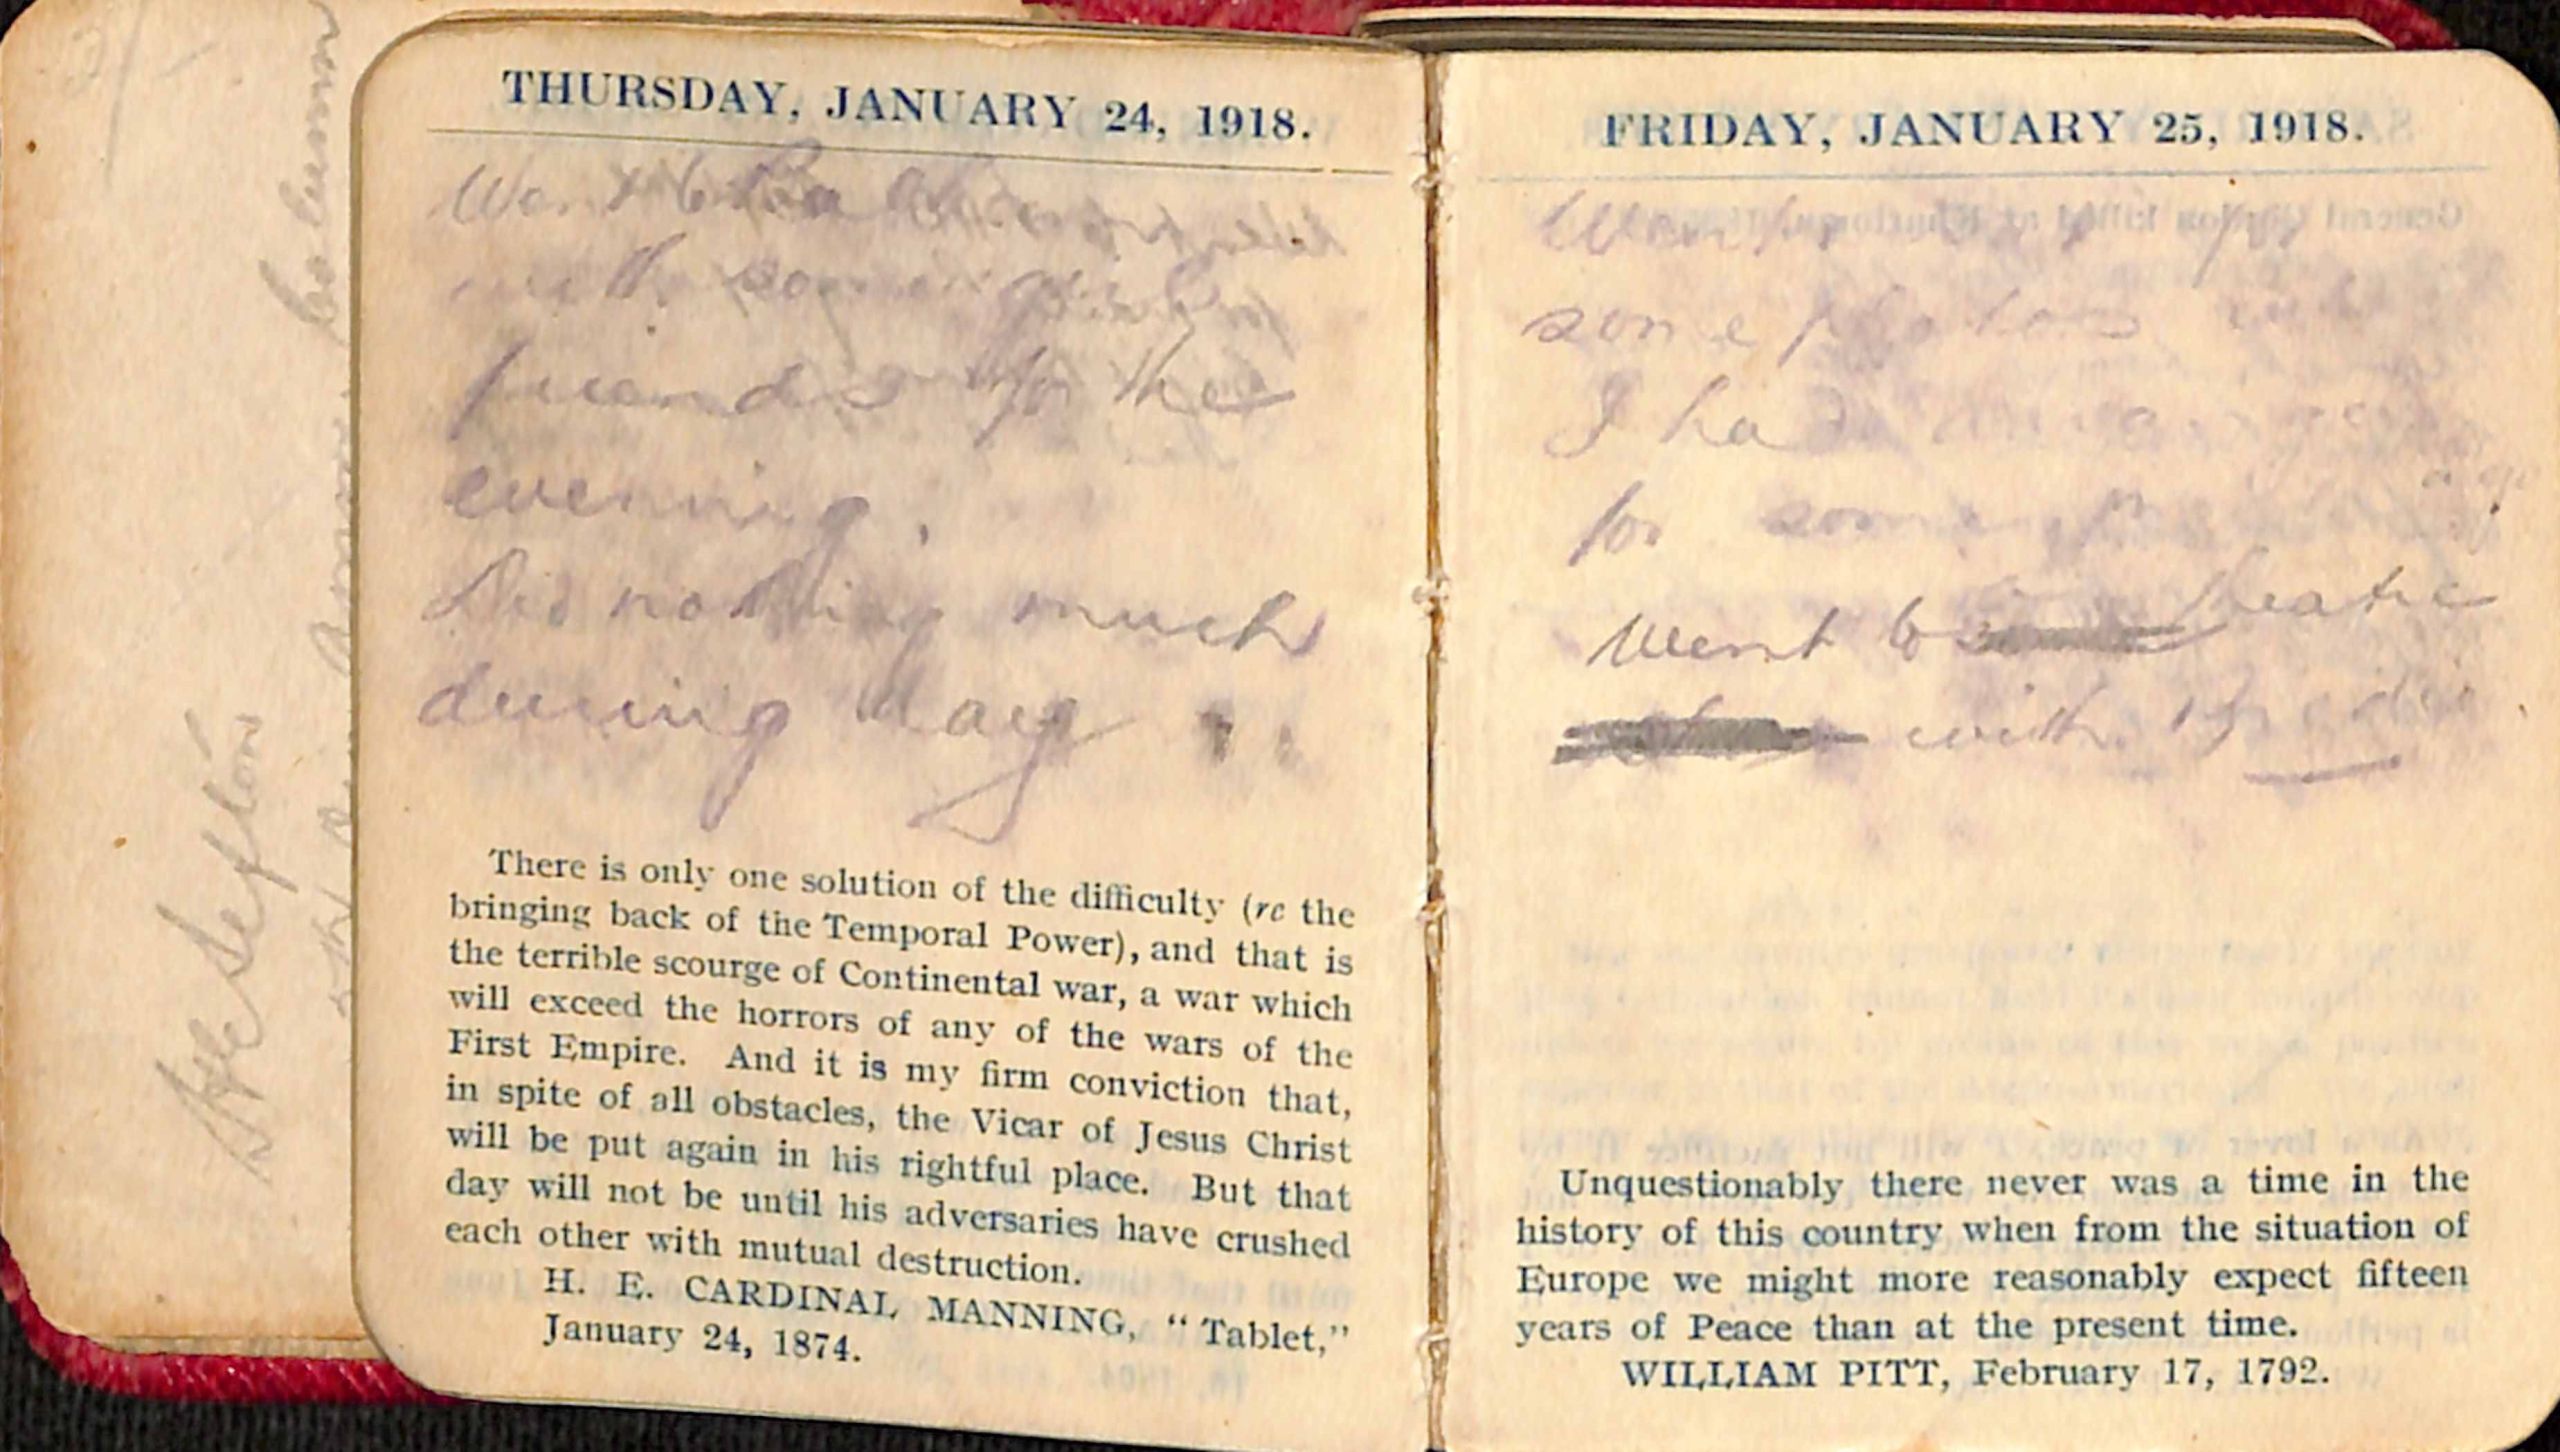 Sefton
column
THURSDAY, JANUARY 24, 1918.
Went to
with some
friends for the
evening.
Did nothing much
during day.
There is only one solution of the difficulty (re the
bringing back of the Temporal Power), and that is
the terrible scourge of Continental war, a war which
will exceed the horrors of any of the wars of the
First Empire. And it is my firm conviction that,
in spite of all obstacles, the Vicar of Jesus Christ
will be put again in his rightful place. But that
day will not be until his adversaries have crushed
each other with mutual destruction.
H. E. CARDINAL MANNING, "Tablet,"
January 24, 1874.
FRIDAY, JANUARY 25, 1918.
Went
some photos
I had
for some
Went to theatre
with
Unquestionably there never was a time in the
history of this country when from the situation of
Europe we might more reasonably expect fifteen
years of Peace than at the present time.
WILLIAM PITT, February 17, 1792.